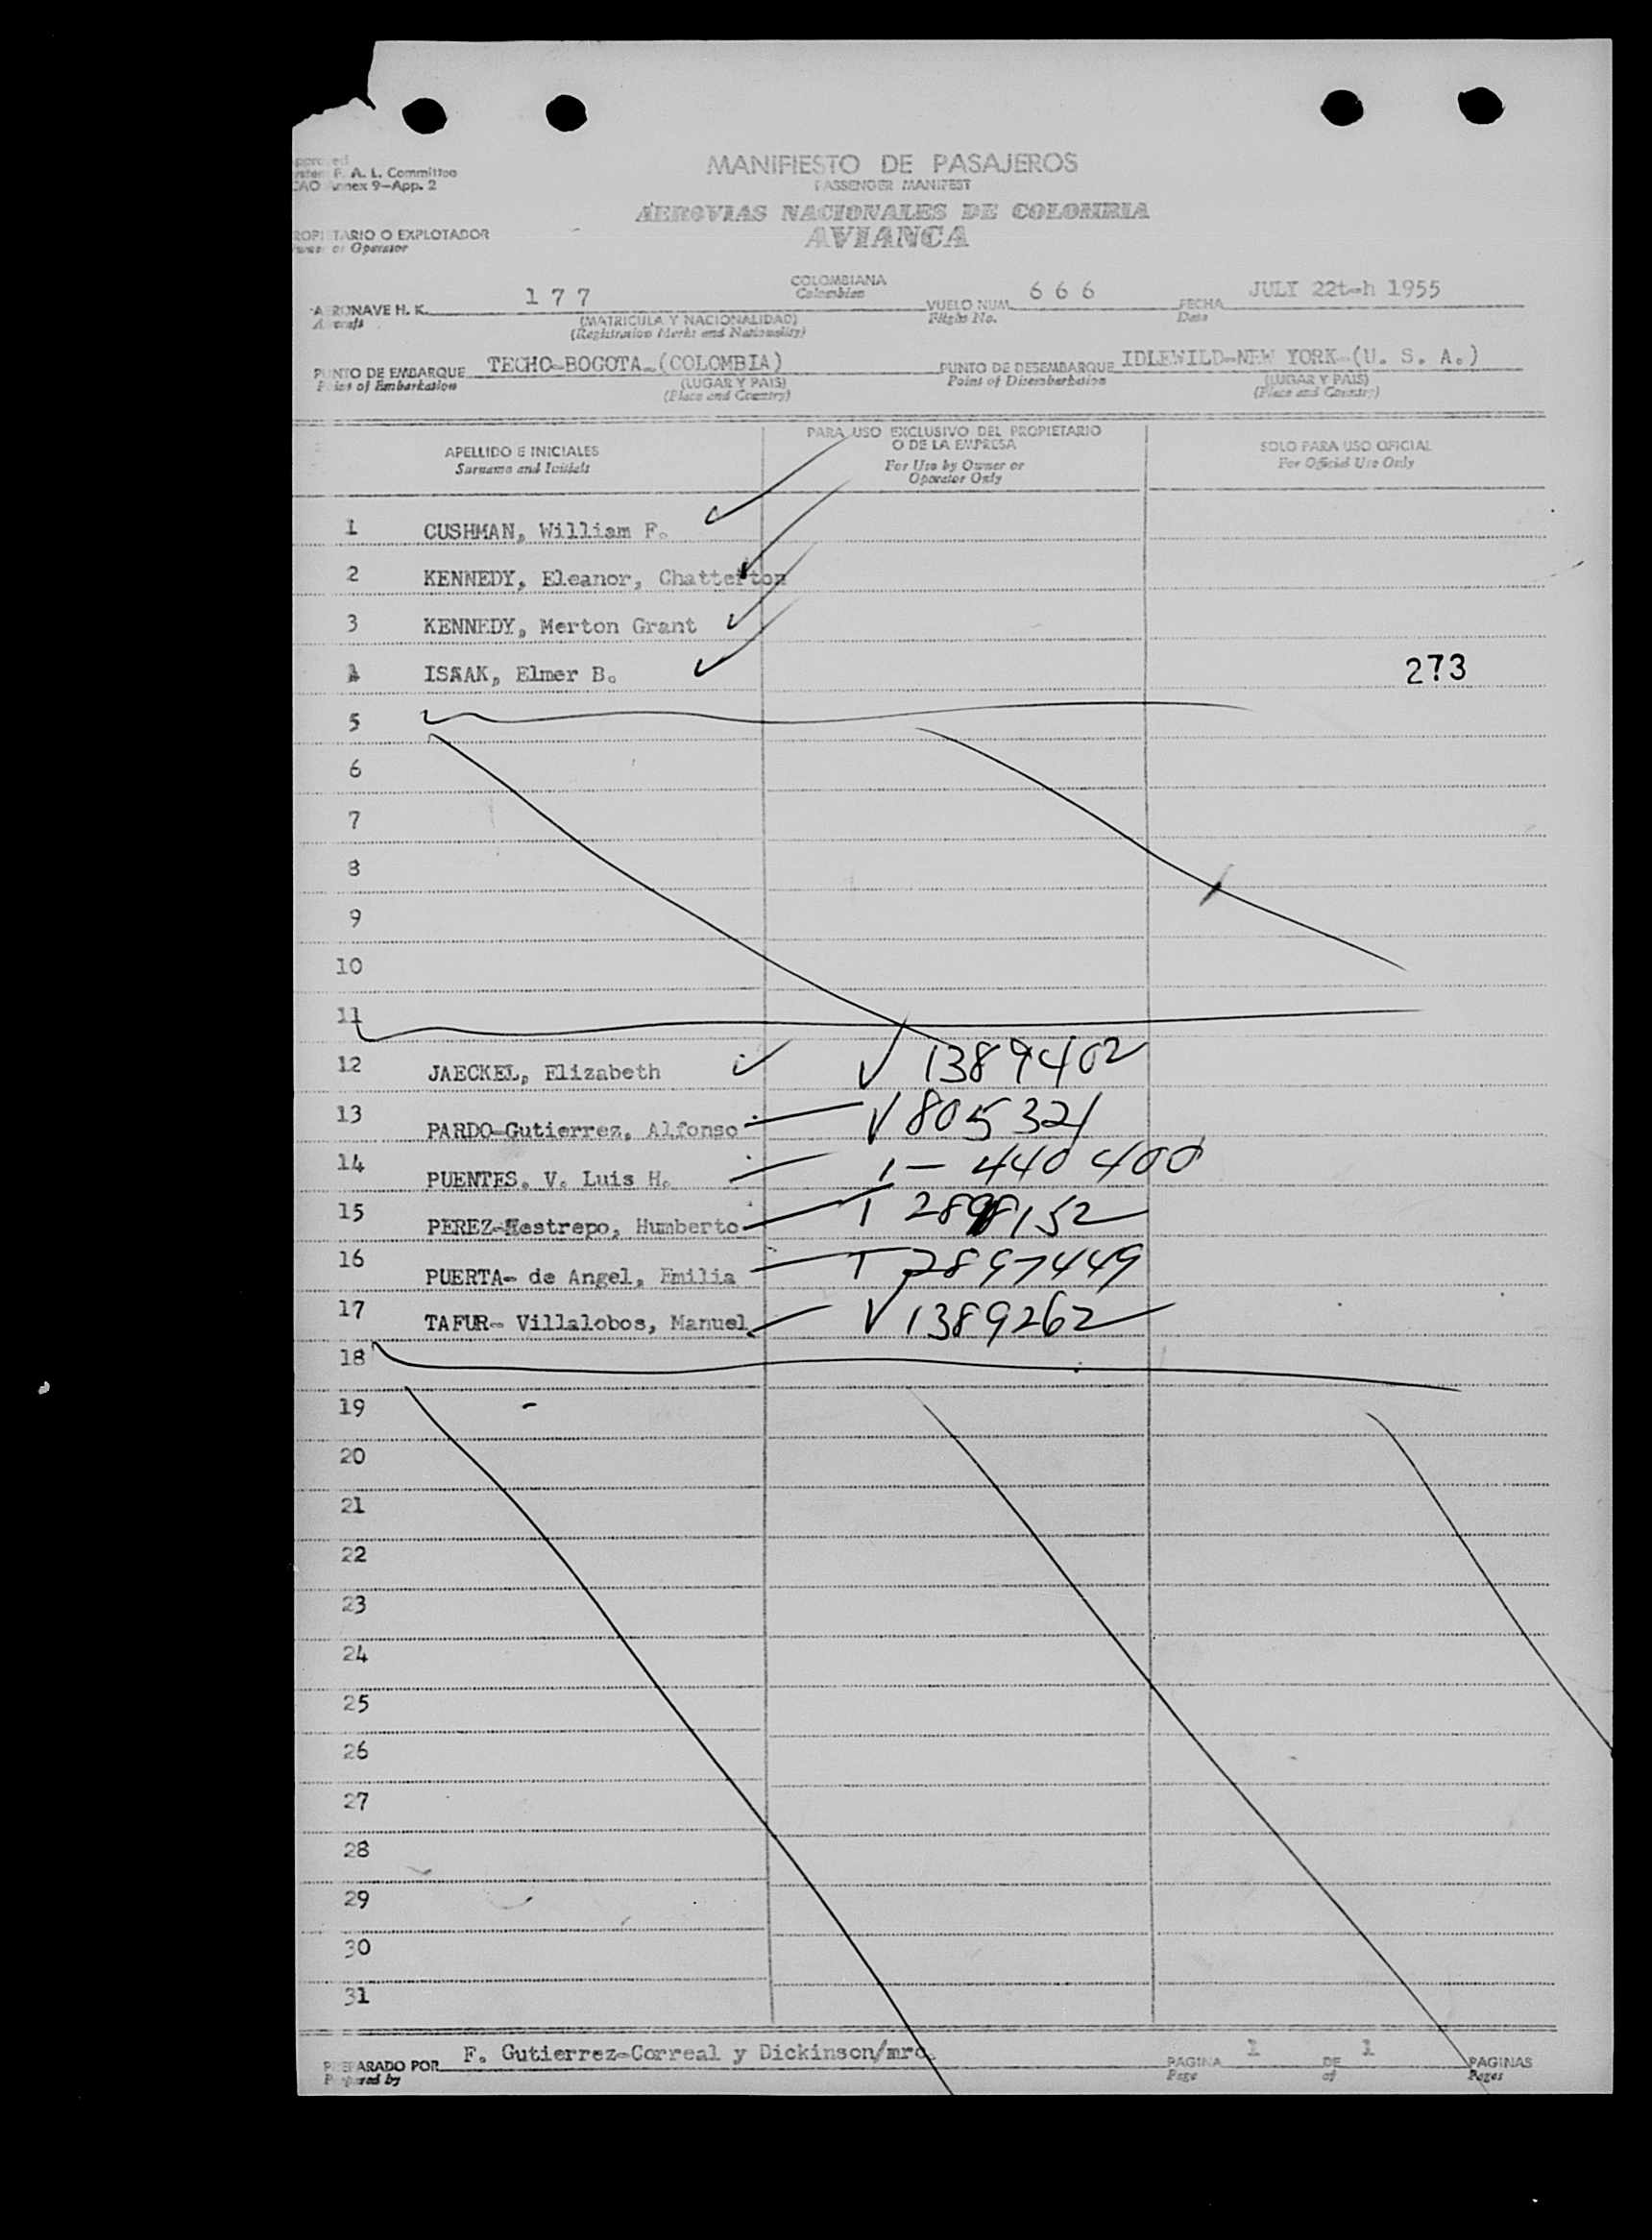 MANIFIESTO DE PASAJEROS
F. A. L. Committee
PASSENGER MANIFEST
Annex 9—App. 2
AEROVIAS NACIONALES DE COLOMBIA
AVIANCA
O EXPLOTADOR
or Operator
COLOMBIANA
Colombian
AERONAVE H. K. 177 VUELO NUM. 666 FECHA JULY 22t-h 1955
Aircraft (MATRICULA Y NACIONALIDAD) Flight No. Date
(Registration Marks and Nationality)
PUNTO DE EMBARQUE TECHO-BOGOTA-(COLOMBIA) PUNTO DE DESEMBARQUE IDLEWILD-NEW YORK-(U. S. A.)
Point of Embarkation (LUGAR Y PAIS) Point of Disembarkation (LUGAR Y PAIS)
(Place and Country) (Place and Country)
APELLIDO E INICIALES PARA USO EXCLUSIVO DEL PROPIETARIO O DE LA EMPRESA SOLO PARA USO OFICIAL
Surname and Initials For Use by Owner or Operator Only For Official Use Only
1 CUSHMAN, William F.
2 KENNEDY, Eleanor, Chatterton
3 KENNEDY, Merton Grant
4 ISAAK, Elmer B. 273
5
6
7
8
9
10
11
12 JAECKEL, Elizabeth V 1389402
13 PARDO-Gutierrez, Alfonso V 805321
14 PUENTES. V. Luis H. 1 - 440400
15 PEREZ-Restrepo, Humberto T 2898152
16 PUERTA- de Angel, Emilia T 2897449
17 TAFUR- Villalobos, Manuel V 1389262
18
19
20
21
22
23
24
25
26
27
28
29
30
31
PREPARADO POR F. Gutierrez-Correal y Dickinson/mrc. PAGINA 1 DE 1 PAGINAS
Prepared by Page of Pages